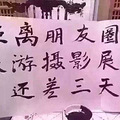 离朋友圈
游摄影展
还差三天